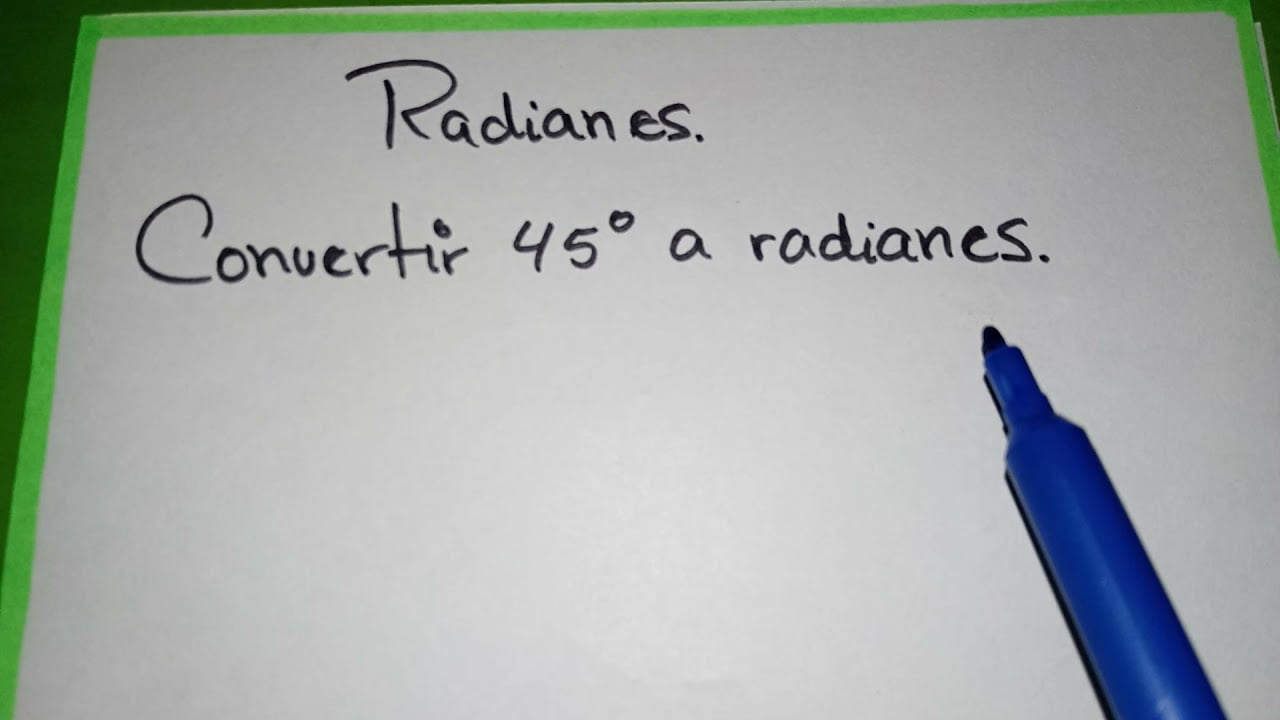 Radianes.
Convertir 45° a radianes.